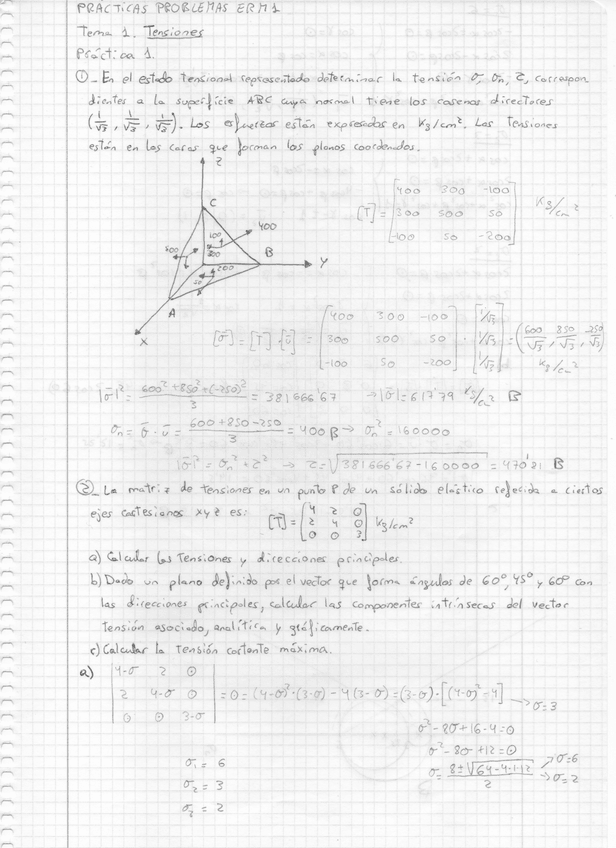 PRÁCTICAS PROBLEMAS ERM1
Tema 1. Tensiones
Práctica 1.
①- En el estado tensional representado determinar la tensión σ, σn, τ, correspon
dientes a la superficie ABC cuya normal tiene los cosenos directores
(1/√3, 1/√3, 1/√3). Los esfuerzos están expresados en Kg/cm². Las tensiones
están en las caras que forman los planos coordenados.
Z
C
400
100
300
500
B
Y
200
50
A
X
[T] = [400 300 -100
300 500 50
-100 50 -200] Kg/cm²
[σ̄] = [T]·[ū] = [400 300 -100
300 500 50
-100 50 -200] · [1/√3
1/√3
1/√3] = (600/√3, 850/√3, -250/√3)
Kg/cm²
|σ̄|² = (600²+850²+(-250)²)/3 = 381666'67 → |σ̄| = 617'79 Kg/cm² B
σn = σ̄·ū = (600+850-250)/3 = 400 B → σn² = 160000
|σ̄|² = σn² + τ² → τ = √(381666'67-160000) = 470'81 B
②- La matriz de tensiones en un punto P de un sólido elástico referida a ciertos
ejes cartesianos xyz es: [T] = [4 2 0
2 4 0
0 0 3] Kg/cm²
a) Calcular las tensiones y direcciones principales.
b) Dado un plano definido por el vector que forma ángulos de 60°, 45° y 60° con
las direcciones principales, calcular las componentes intrínsecas del vector
tensión asociado, analítica y gráficamente.
c) Calcular la tensión cortante máxima.
a) |4-σ 2 0
2 4-σ 0
0 0 3-σ| = 0 = (4-σ)²·(3-σ) - 4(3-σ) = (3-σ)·[(4-σ)²-4] → σ=3
σ²-8σ+16-4=0
σ²-8σ+12=0
σ = (8±√(64-4·1·12))/2 → σ=6
→ σ=2
σ₁ = 6
σ₂ = 3
σ₃ = 2